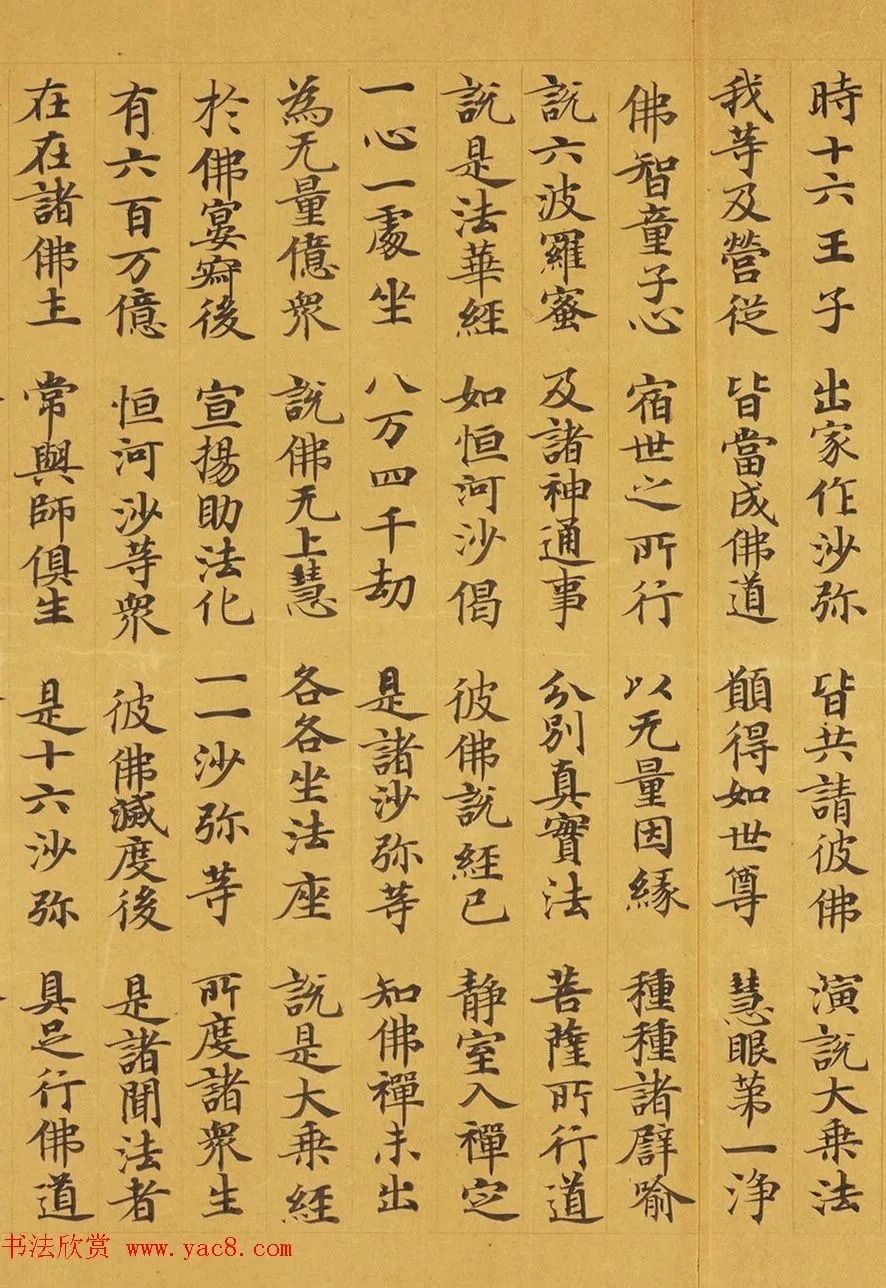 時十六王子 出家作沙弥 皆共請彼佛 演說大乗法
我等及營從 皆當成佛道 願得如世尊 慧眼第一浄
佛智童子心 宿世之所行 以无量因縁 種種諸辟喻
說六波羅蜜 及諸神通事 分別真實法 菩薩所行道
說是法華經 如恒河沙偈 彼佛說經已 静室入禪定
一心一處坐 八万四千劫 是諸沙弥等 知佛禪未出
為无量億衆 說佛无上慧 各各坐法座 說是大乗經
於佛宴寂後 宣揚助法化 一一沙弥等 所度諸衆生
有六百万億 恒河沙等衆 彼佛滅度後 是諸聞法者
在在諸佛土 常與師俱生 是十六沙弥 具足行佛道
书法欣赏 www.yac8.com